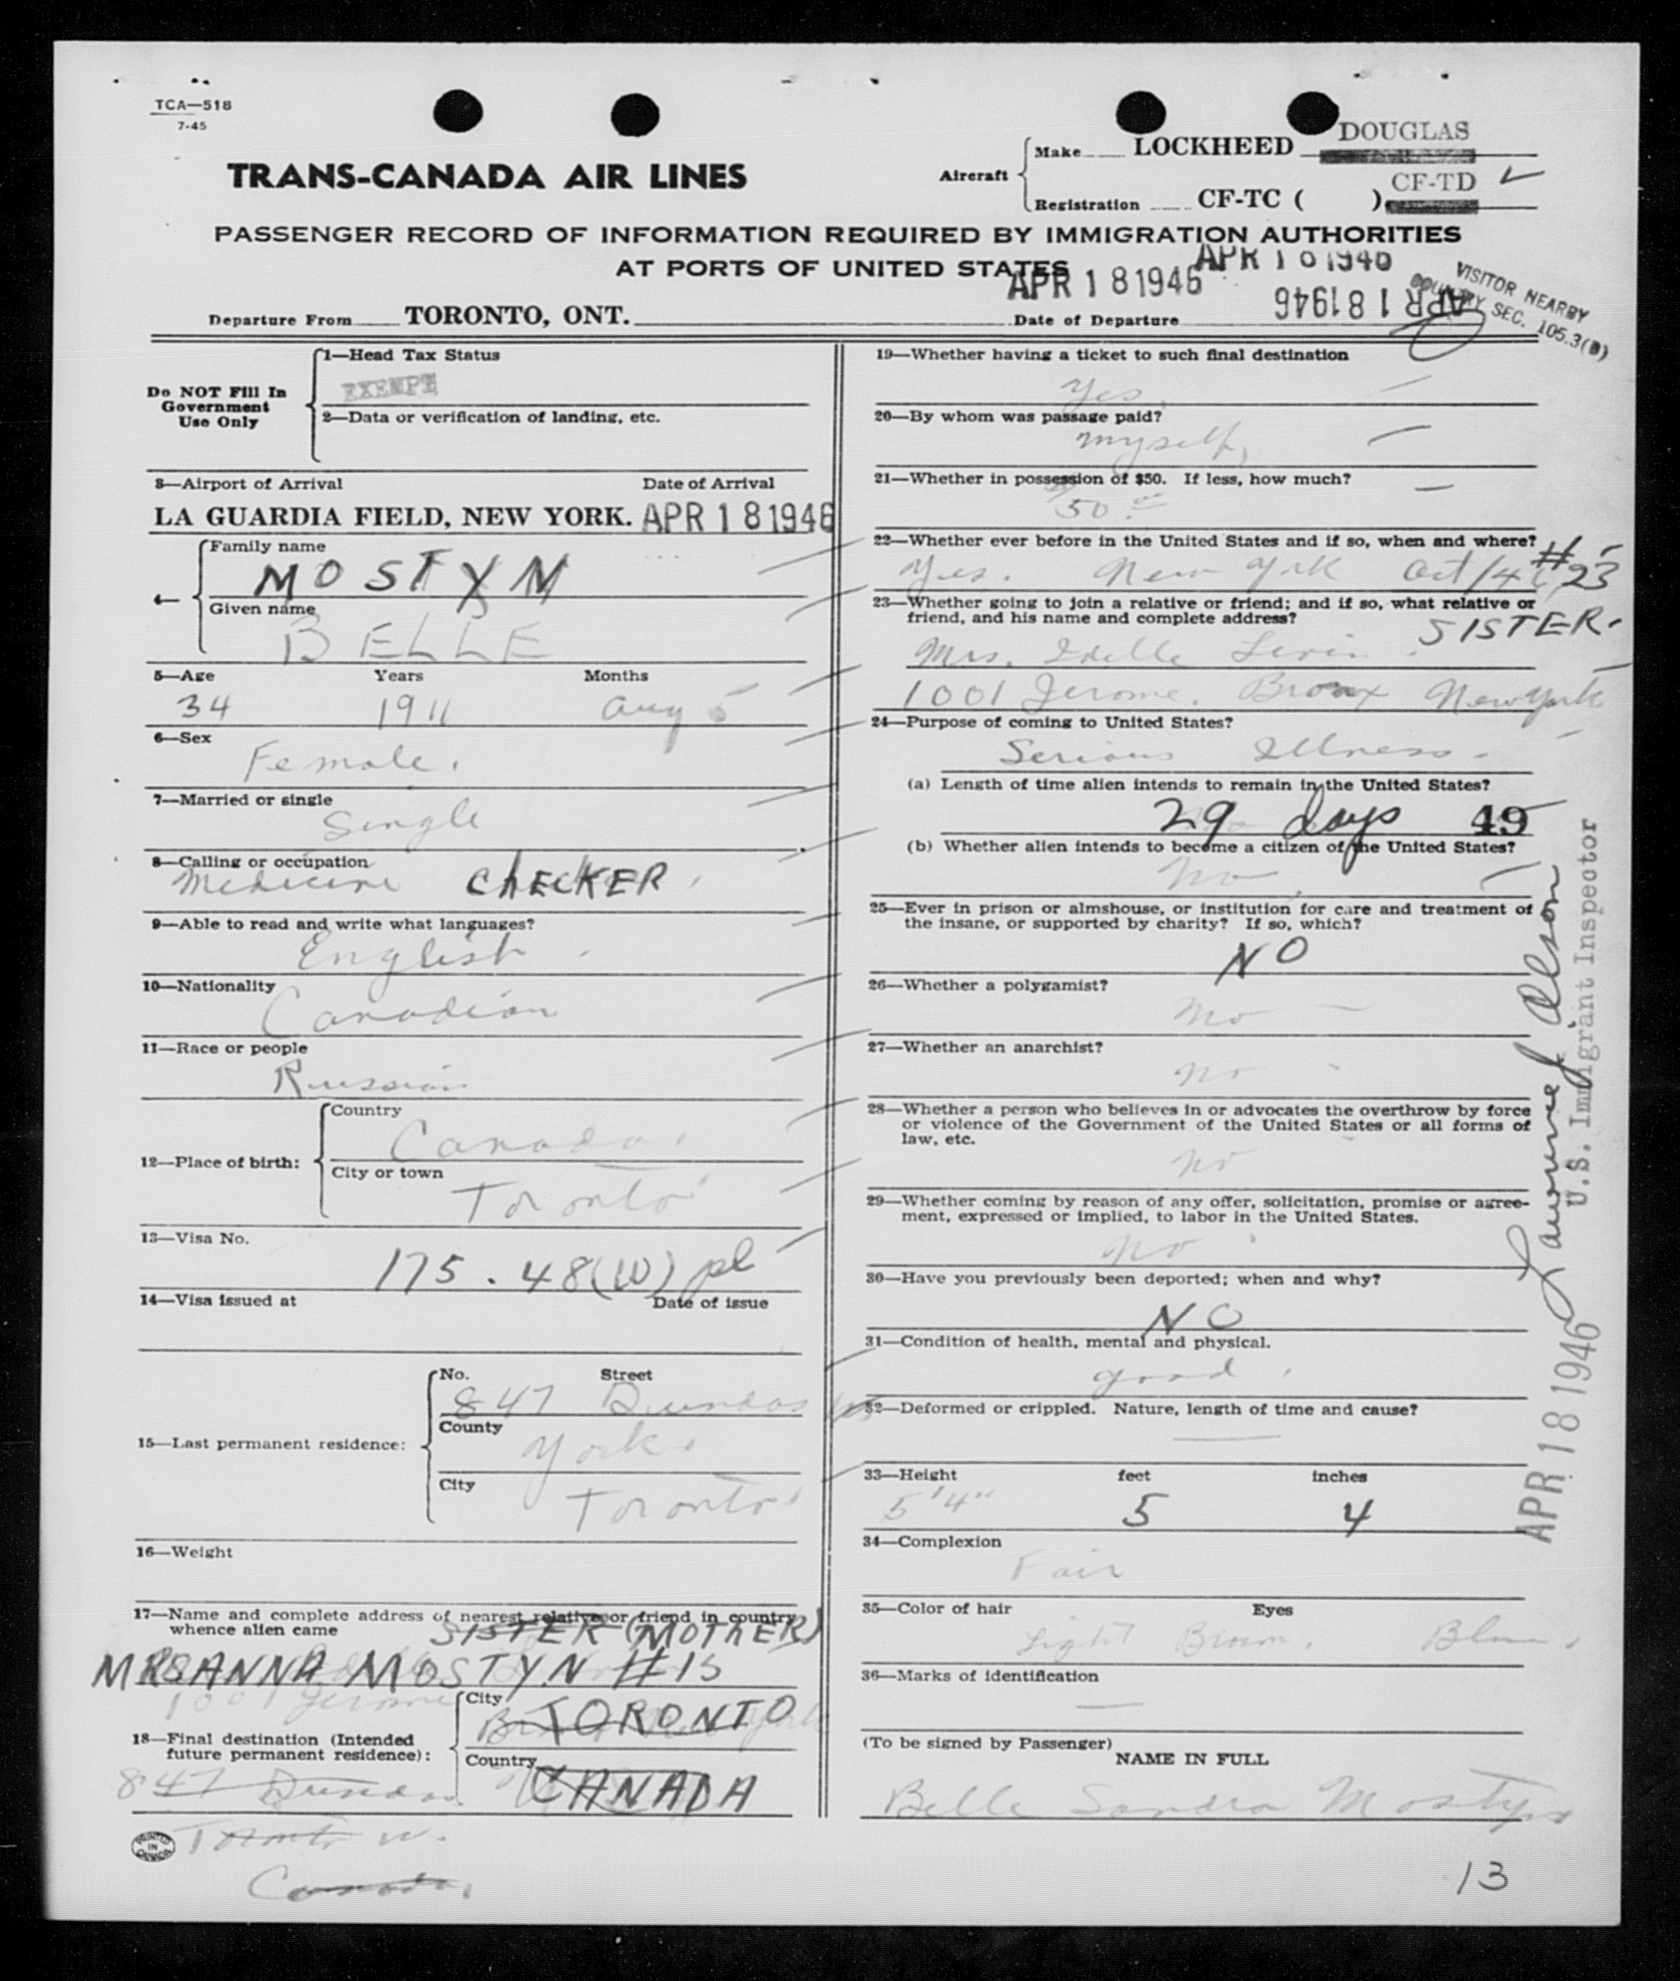 TCA—518
7-45
TRANS-CANADA AIR LINES
Aircraft
Make LOCKHEED DOUGLAS
Registration CF-TC ( ) CF-TD
PASSENGER RECORD OF INFORMATION REQUIRED BY IMMIGRATION AUTHORITIES
AT PORTS OF UNITED STATES
APR 18 1946
APR 18 1946
APR 18 1946
VISITOR NEARBY
COUNTRY SEC. 105.3(B)
Departure From TORONTO, ONT.
Date of Departure
Do NOT Fill In
Government
Use Only
1—Head Tax Status
EXEMPT
2—Data or verification of landing, etc.
3—Airport of Arrival Date of Arrival
LA GUARDIA FIELD, NEW YORK. APR 18 1946
4—
Family name
MOSTYN
Given name
BELLE
5—Age Years Months
34 1911 Aug 5
6—Sex
Female.
7—Married or single
Single
8—Calling or occupation
Medicine CHECKER
9—Able to read and write what languages?
English
10—Nationality
Canadian
11—Race or people
Russian
12—Place of birth:
Country
Canada
City or town
Toronto
13—Visa No.
175.48(W) pl
14—Visa issued at Date of issue
15—Last permanent residence:
No. Street
847 Dundas W
County
York
City
Toronto
16—Weight
17—Name and complete address of nearest relative or friend in country
whence alien came
SISTER (MOTHER)
MRS ANNA MOSTYN #15
1001 Jerome
18—Final destination (Intended
future permanent residence):
City
TORONTO
Country
CANADA
847 Dundas
Toronto W.
Canada,
PRINTED IN CANADA
19—Whether having a ticket to such final destination
Yes
20—By whom was passage paid?
myself,
21—Whether in possession of $50. If less, how much?
50
22—Whether ever before in the United States and if so, when and where?
Yes. New York Oct/4 #23
23—Whether going to join a relative or friend; and if so, what relative or
friend, and his name and complete address?
SISTER.
Mrs. Idelle Levin
1001 Jerome. Bronx New York
24—Purpose of coming to United States?
Serious Illness
(a) Length of time alien intends to remain in the United States?
29 days 49
(b) Whether alien intends to become a citizen of the United States?
No
25—Ever in prison or almshouse, or institution for care and treatment of
the insane, or supported by charity? If so, which?
NO
26—Whether a polygamist?
No
27—Whether an anarchist?
No
28—Whether a person who believes in or advocates the overthrow by force
or violence of the Government of the United States or all forms of
law, etc.
No
29—Whether coming by reason of any offer, solicitation, promise or agree-
ment, expressed or implied, to labor in the United States.
No
30—Have you previously been deported; when and why?
NO
31—Condition of health, mental and physical.
good
32—Deformed or crippled. Nature, length of time and cause?
33—Height feet inches
5'4" 5 4
34—Complexion
Fair
35—Color of hair Eyes
Light Brown. Blue
36—Marks of identification
(To be signed by Passenger)
NAME IN FULL
Belle Sandra Mostyn
13
U.S. Immigrant Inspector
APR 18 1946